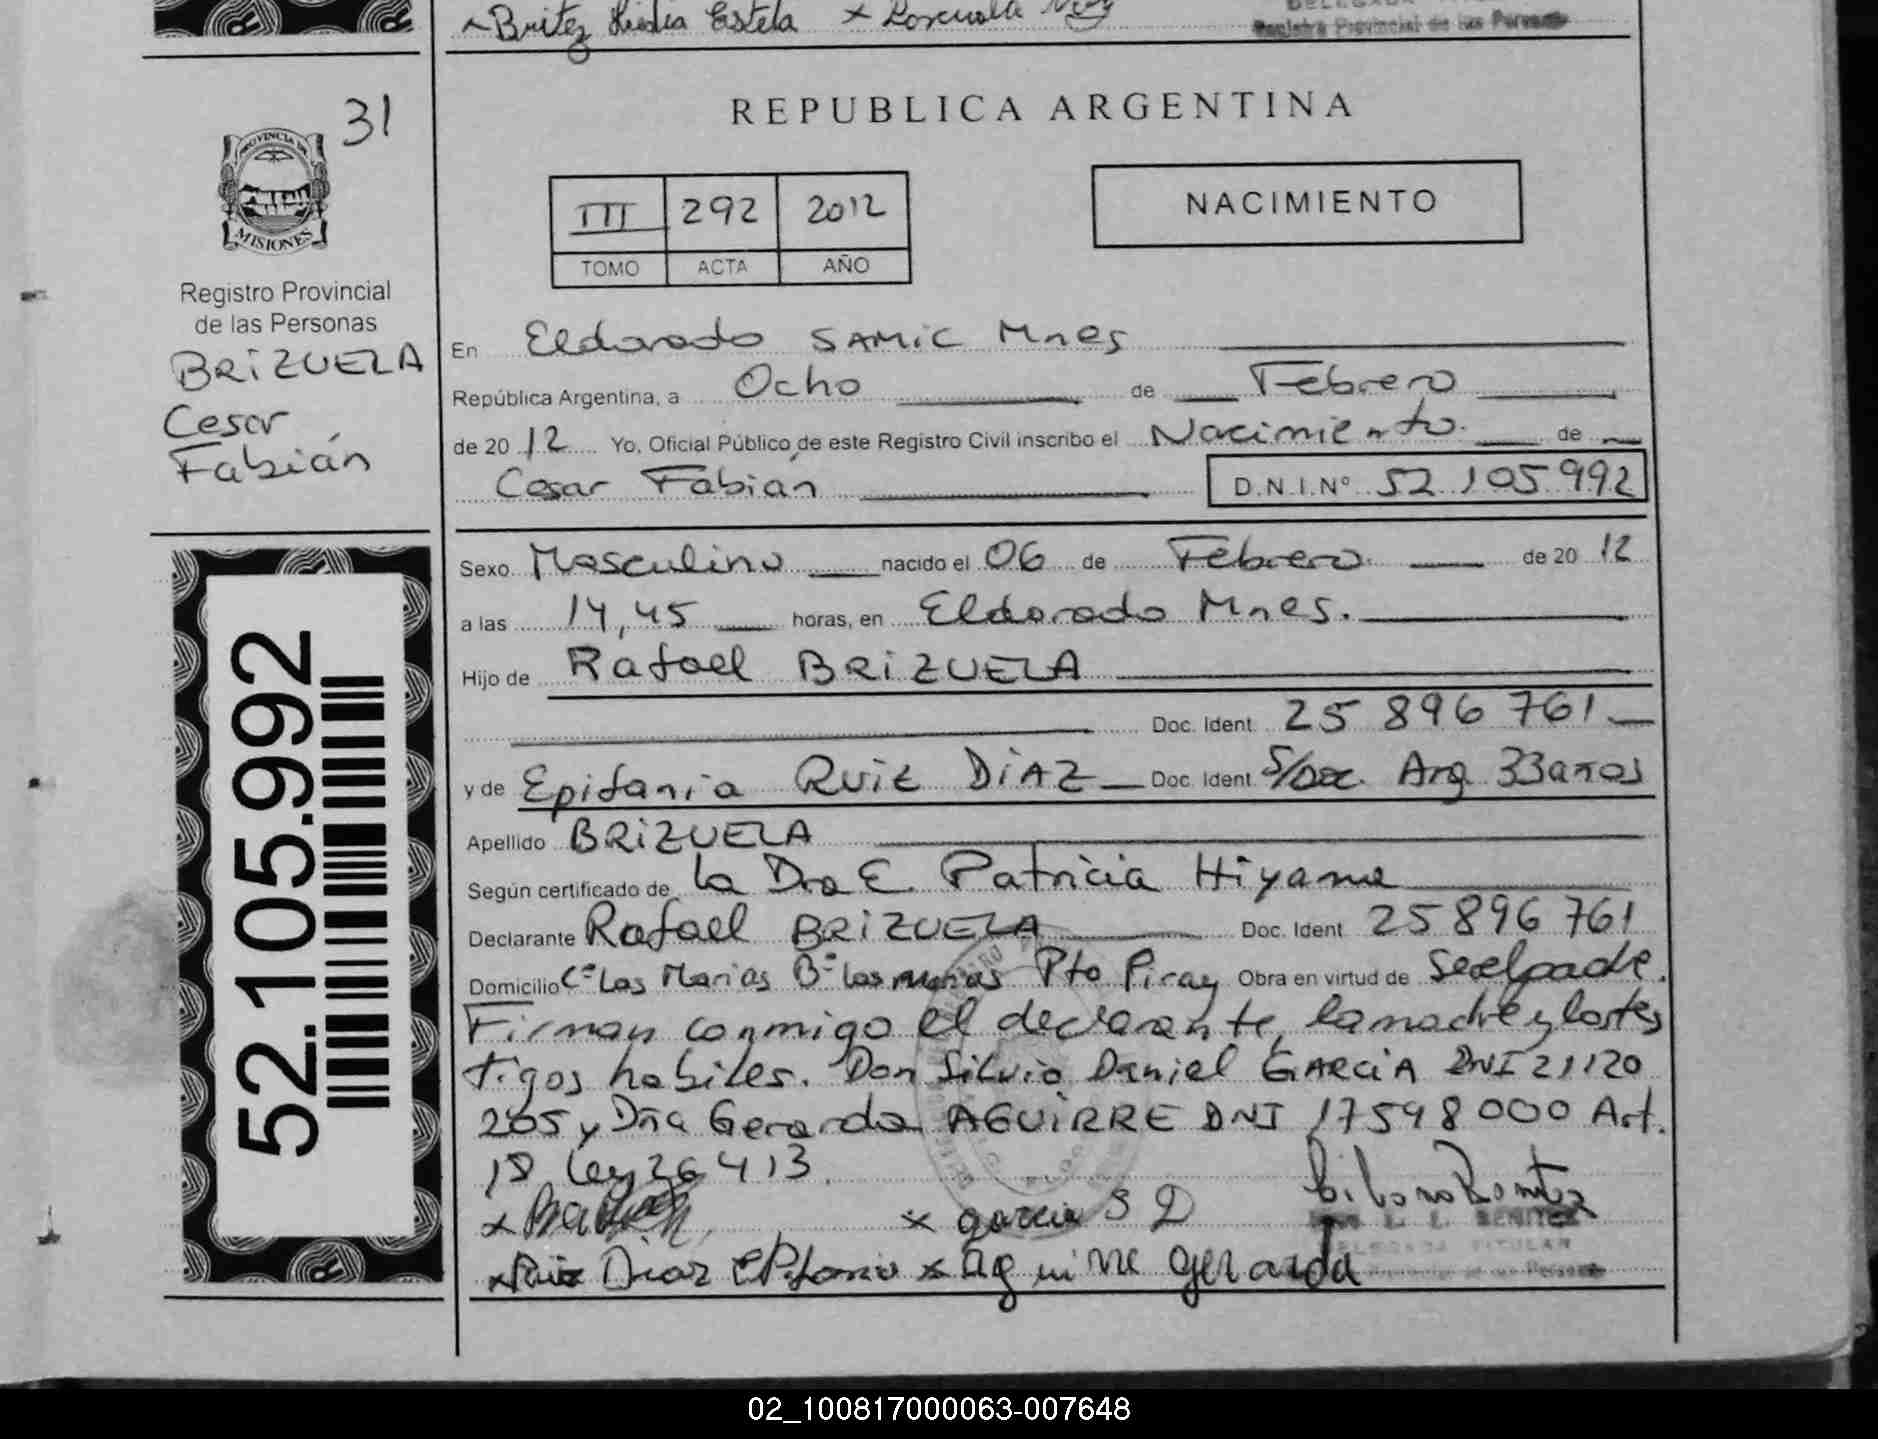 x Britez Lidia Estela x
Registro Provincial de las Personas
31
PROVINCIA DE
MISIONES
Registro Provincial
de las Personas
BRIZUELA
Cesar
Fabián
52.105.992
REPUBLICA ARGENTINA
III 292 2012
TOMO ACTA AÑO
NACIMIENTO
En Eldorado SAMIC Mnes
República Argentina, a Ocho de Febrero
de 2012 Yo, Oficial Público de este Registro Civil inscribo el Nacimiento de
Cesar Fabián D.N.I.Nº 52 105 992
Sexo Masculino nacido el 06 de Febrero de 2012
a las 14,45 horas, en Eldorado Mnes.
Hijo de Rafael BRIZUELA
Doc. Ident 25 896 761
y de Epifania RUIZ DIAZ Doc. Ident S/Doc. Arg 33 años
Apellido BRIZUELA
Según certificado de la Dra E. Patricia Hiyama
Declarante Rafael BRIZUELA Doc. Ident 25 896 761
Domicilio Cº Las Marias Bº las Pto Piray Obra en virtud de ser el padre.
Firman conmigo el declarante, la madre y los tes
tigos habiles. Don Silvio Daniel GARCIA DNI 21120
205 y Dña Gerarda AGUIRRE DNI 17598000 Art.
18 Ley 26413
x x garcia S D
BENITEZ
DELEGADA TITULAR
x Ruiz Diaz Epifania x aguirre gerarda
02_100817000063-007648